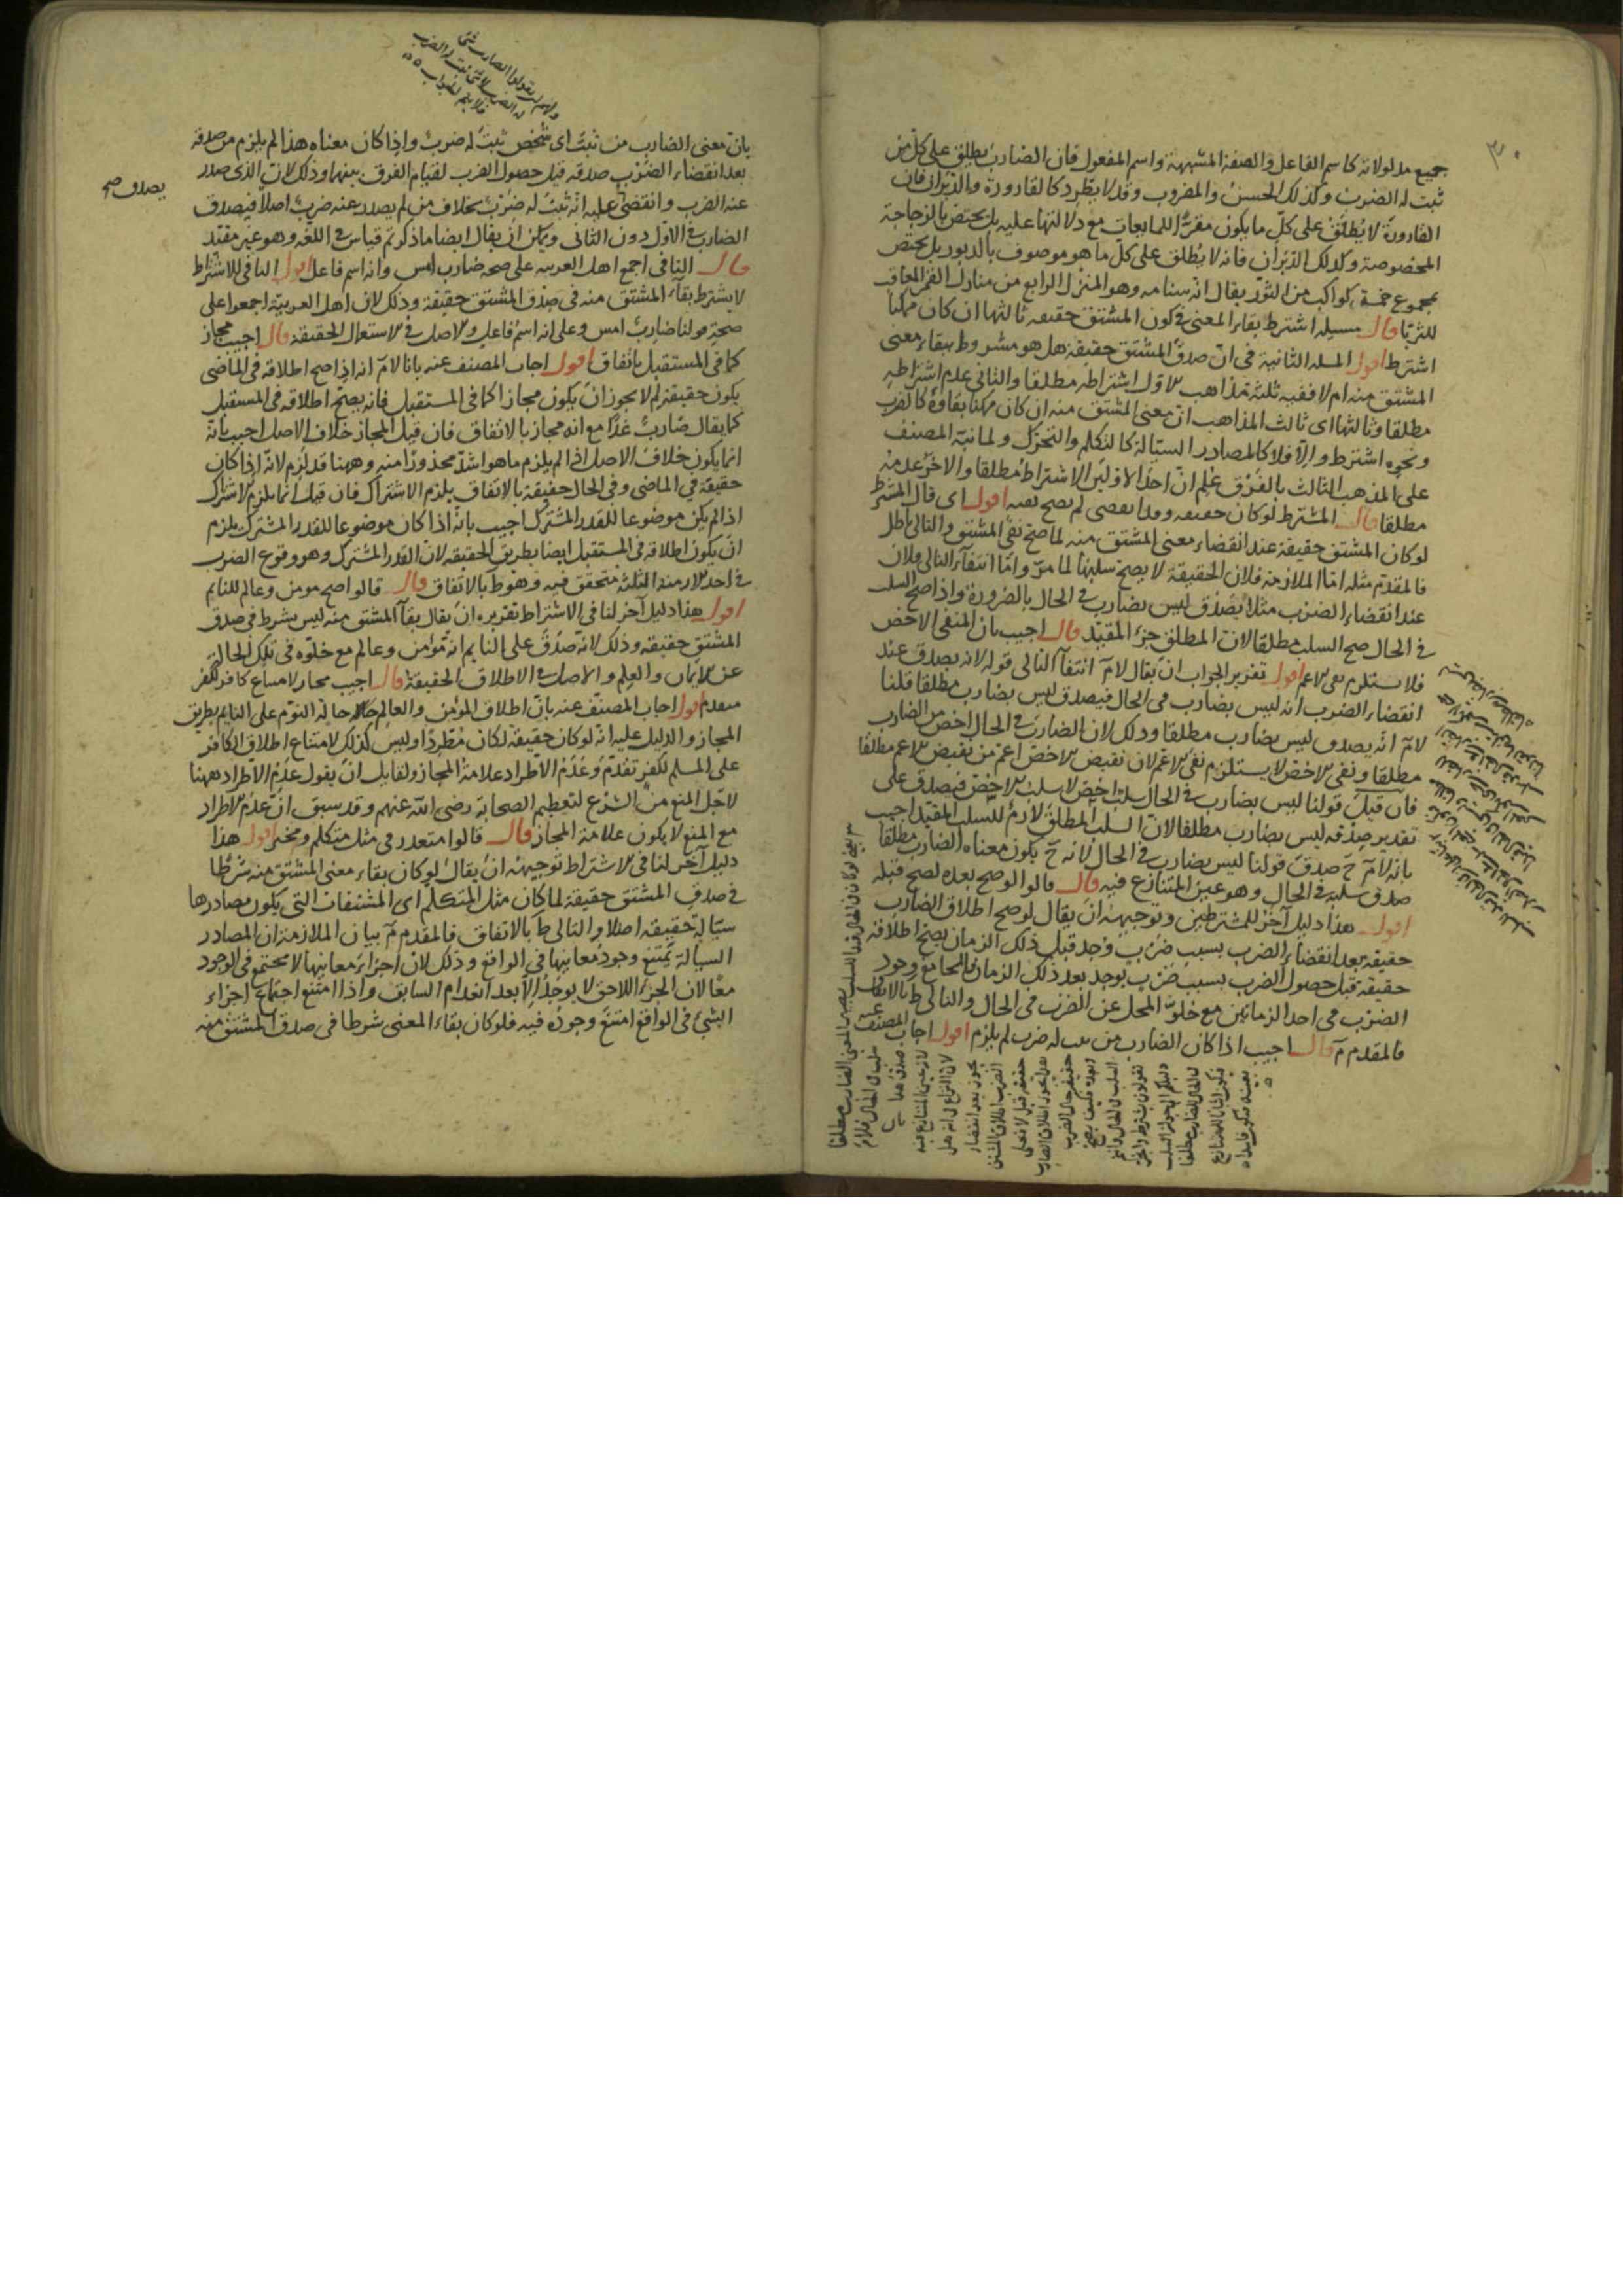 ٣٠
جميع مدلولاته كاسم الفاعل والصفة المشبهة واسم المفعول فان الضارب يطلق على كل من
ثبت له الضرب وكذلك الحسن والمضروب وقد لا يطّرد كالقارورة والدبران فان
القارورة لا يُطلق على كلّ ما يكون مقرّ للمايعات مع دلالتها عليه بل يختص بالزجاجة
المخصوصة وكذلك الدبران فانه لا يُطلق على كل ما هو موصوف بالدبور بل يختص
بمجموع خمسة كواكب من الثور يقال انه سنامه وهو المنزل الرابع من منازل القمر المعاقب
للثريا قال مسيله اشترط بقاء المعنى في كون المشتق حقيقه ثالثها ان كان ممكنا
اشترط اقول المسله الثانية في انّ صدق المشتق حقيقة هل هو مشروط ببقاء معنى
المشتق منه ام لا ففيه ثلثة مذاهب الاول اشتراطه مطلقا والثاني عدم اشتراطه
مطلقا وثالثها اى ثالث المذاهب انّ معنى المشتق منه ان كان ممكنا بقاؤه كالضرب
ونحوه اشترط والّا فلا كالمصادر السيّالة كالتكلم والتحرك ولما نبّه المصنف
على المذهب الثالث بالفرق عُلم انّ احد الاولين الاشتراط مطلقا والاخر عدمه
مطلقا قال المشترط لو كان حقيقه وقد انقضى لم يصح نفيه اقول اى قال المشترط
لو كان المشتق حقيقة عند انقضاء معنى المشتق منه لما صح نفي المشتق والتالى باطل
فالمقدم مثله امّا الملازمة فلان الحقيقة لا يصح سلبها لما مرّ وامّا انتفاء التالى فلان
عند انقضاء الضرب مثلا يصدق ليس بضارب في الحال بالضرورة واذا صح السلب
في الحال صح السلب مطلقا لان المطلق جزء المقيّد قال اجيب بان المنفى الاخص
فلا يستلزم نفى الاعم اقول تقرير الجواب ان يقال لا مَ انتفاء التالى قوله لانه يصدق عند
انقضاء الضرب انه ليس بضارب في الحال فيصدق ليس بضارب مطلقا قلنا
لا مَ انّه يصدق ليس بضارب مطلقا وذلك لان الضارب في الحال اخصّ من الضارب
مطلقا ونفى الاخصّ لا يستلزم نفى الاعم لان نقيض الاخص اعم من نقيض الاعم مطلقا
فان قيل قولنا ليس بضارب في الحال سلب اخصّ لا سلب الاخص فيصدق على
تقدير صدقه ليس بضارب مطلقا لان السلب المطلق لازم للسلب المقيد اجيب
بانه لا مَ حَ صدق قولنا ليس بضارب في الحال لانه حَ يكون معناه الضارب مطلقا
صدق سلبه في الحال وهو عين المتنازع فيه قال قالوا لو صح بعده لصح قبله
اقول هذا دليل آخر للمشترطين وتوجيهه ان يقال لو صح اطلاق الضارب
حقيقة بعد انقضاء الضرب بسبب ضرب وُجد قبل ذلك الزمان يصح اطلاقه
حقيقة قبل حصول الضرب بسبب ضرب يوجد بعد ذلك الزمان والجامع وجود
الضرب في احد الزمانين مع خلوّ المحل عن الضرب في الحال والتالى ط بالاتفاق
فالمقدم مَ قال اجيب اذا كان الضارب من ثبت له ضرب لم يلزم اقول اجاب المصنف عنه
بانّ معنى الضارب من ثبت اى شخص ثبت له ضرب واذا كان معناه هذا لم يلزم من صدقه
بعد انقضاء الضرب صدقه قبل حصول الضرب لقيام الفرق بينهما وذلك لان الذى صدر
عنه الضرب وانقضى عليه انه ثبت له ضرب بخلاف من لم يصدر عنه ضرب اصلا فيصدق
يصدق صح
الضارب في الاول دون الثانى ويمكن ان يقال ايضا ما ذكرتم قياس في اللغه وهو غير مفيد
قال النافى اجمع اهل العربيه على صحه ضارب امس وانه اسم فاعل اقول النافى للاشتراط
لا يشترط بقاء المشتق منه في صدق المشتق حقيقة وذلك لان اهل العربية اجمعوا على
صحة قولنا ضارب امس وعلى انه اسم فاعل والاصل في الاستعمال الحقيقة قال اجيب مجاز
كما في المستقبل باتفاق اقول اجاب المصنف عنه بانا لا مَ انه اذا صح اطلاقه في الماضى
يكون حقيقة لم لا يجوز ان يكون مجازا كما في المستقبل فانه يصحّ اطلاقه في المستقبل
كما يقال ضارب غدًا مع انه مجاز بالاتفاق فان قيل المجاز خلاف الاصل اجيب بانّه
انما يكون خلاف الاصل اذا لم يلزم ما هو اشدّ محذورًا منه وههنا قد لزم لانّه اذا كان
حقيقة في الماضى وفي الحال حقيقة بالاتفاق يلزم الاشتراك فان قيل انما يلزم الاشتراك
اذا لم يكن موضوعا للقدر المشترك اجيب بانّه اذا كان موضوعا للقدر المشترك يلزم
ان يكون اطلاقه في المستقبل ايضا بطريق الحقيقه لان القدر المشترك وهو وقوع الضرب
في احد الازمنة الثلثة متحقق فيه وهو ط بالاتفاق قال قالوا صح مومن وعالم للنائم
اقول هذا دليل آخر لنافى الاشتراط تقريره ان يقال بقاء المشتق منه ليس بشرط في صدق
المشتق حقيقه وذلك لانّه صدق على النايم انه مؤمن وعالم مع خلوّه في تلك الحالة
عن الايمان والعلم والاصل في الاطلاق الحقيقة قال اجيب مجاز لامتناع كافر لكفر
تقدم اقول اجاب المصنف عنه بانّ اطلاق المؤمن والعالم حالة النوم على النايم بطريق
المجاز والدليل عليه انّه لو كان حقيقة لكان مُطّردًا وليس كذلك لامتناع اطلاق الكافر
على المسلم لكفر تقدّم وعدم الاطراد علامة المجاز ولقايل ان يقول عدم الاطراد ههنا
لاجل المنع من الشرع لتعظيم الصحابة رضى الله عنهم وقد سبق انّ عدم الاطراد
مع المنع لا يكون علامة المجاز قال قالوا متعذر في مثل متكلم ومخبر اقول هذا
دليل آخر لنافى الاشتراط توجيهه ان يقال لو كان بقاء معنى المشتق منه شرطا
في صدق المشتق حقيقة لما كان مثل المتكلم اى المشتقات التى يكون مصادرها
سيّالة حقيقه اصلا والتالى ط بالاتفاق فالمقدم مَ بيان الملازمة ان المصادر
السيالة يمتنع وجود معانيها في الواقع وذلك لان اجزاء معانيها لا يجتمع في الوجود
معًا لان الجزء اللاحق لا يوجد الّا بعد انعدام السابق واذا امتنع اجتماع اجزاء
الشئ في الواقع امتنع وجوده فيه فلو كان بقاء المعنى شرطا في صدق المشتق منه